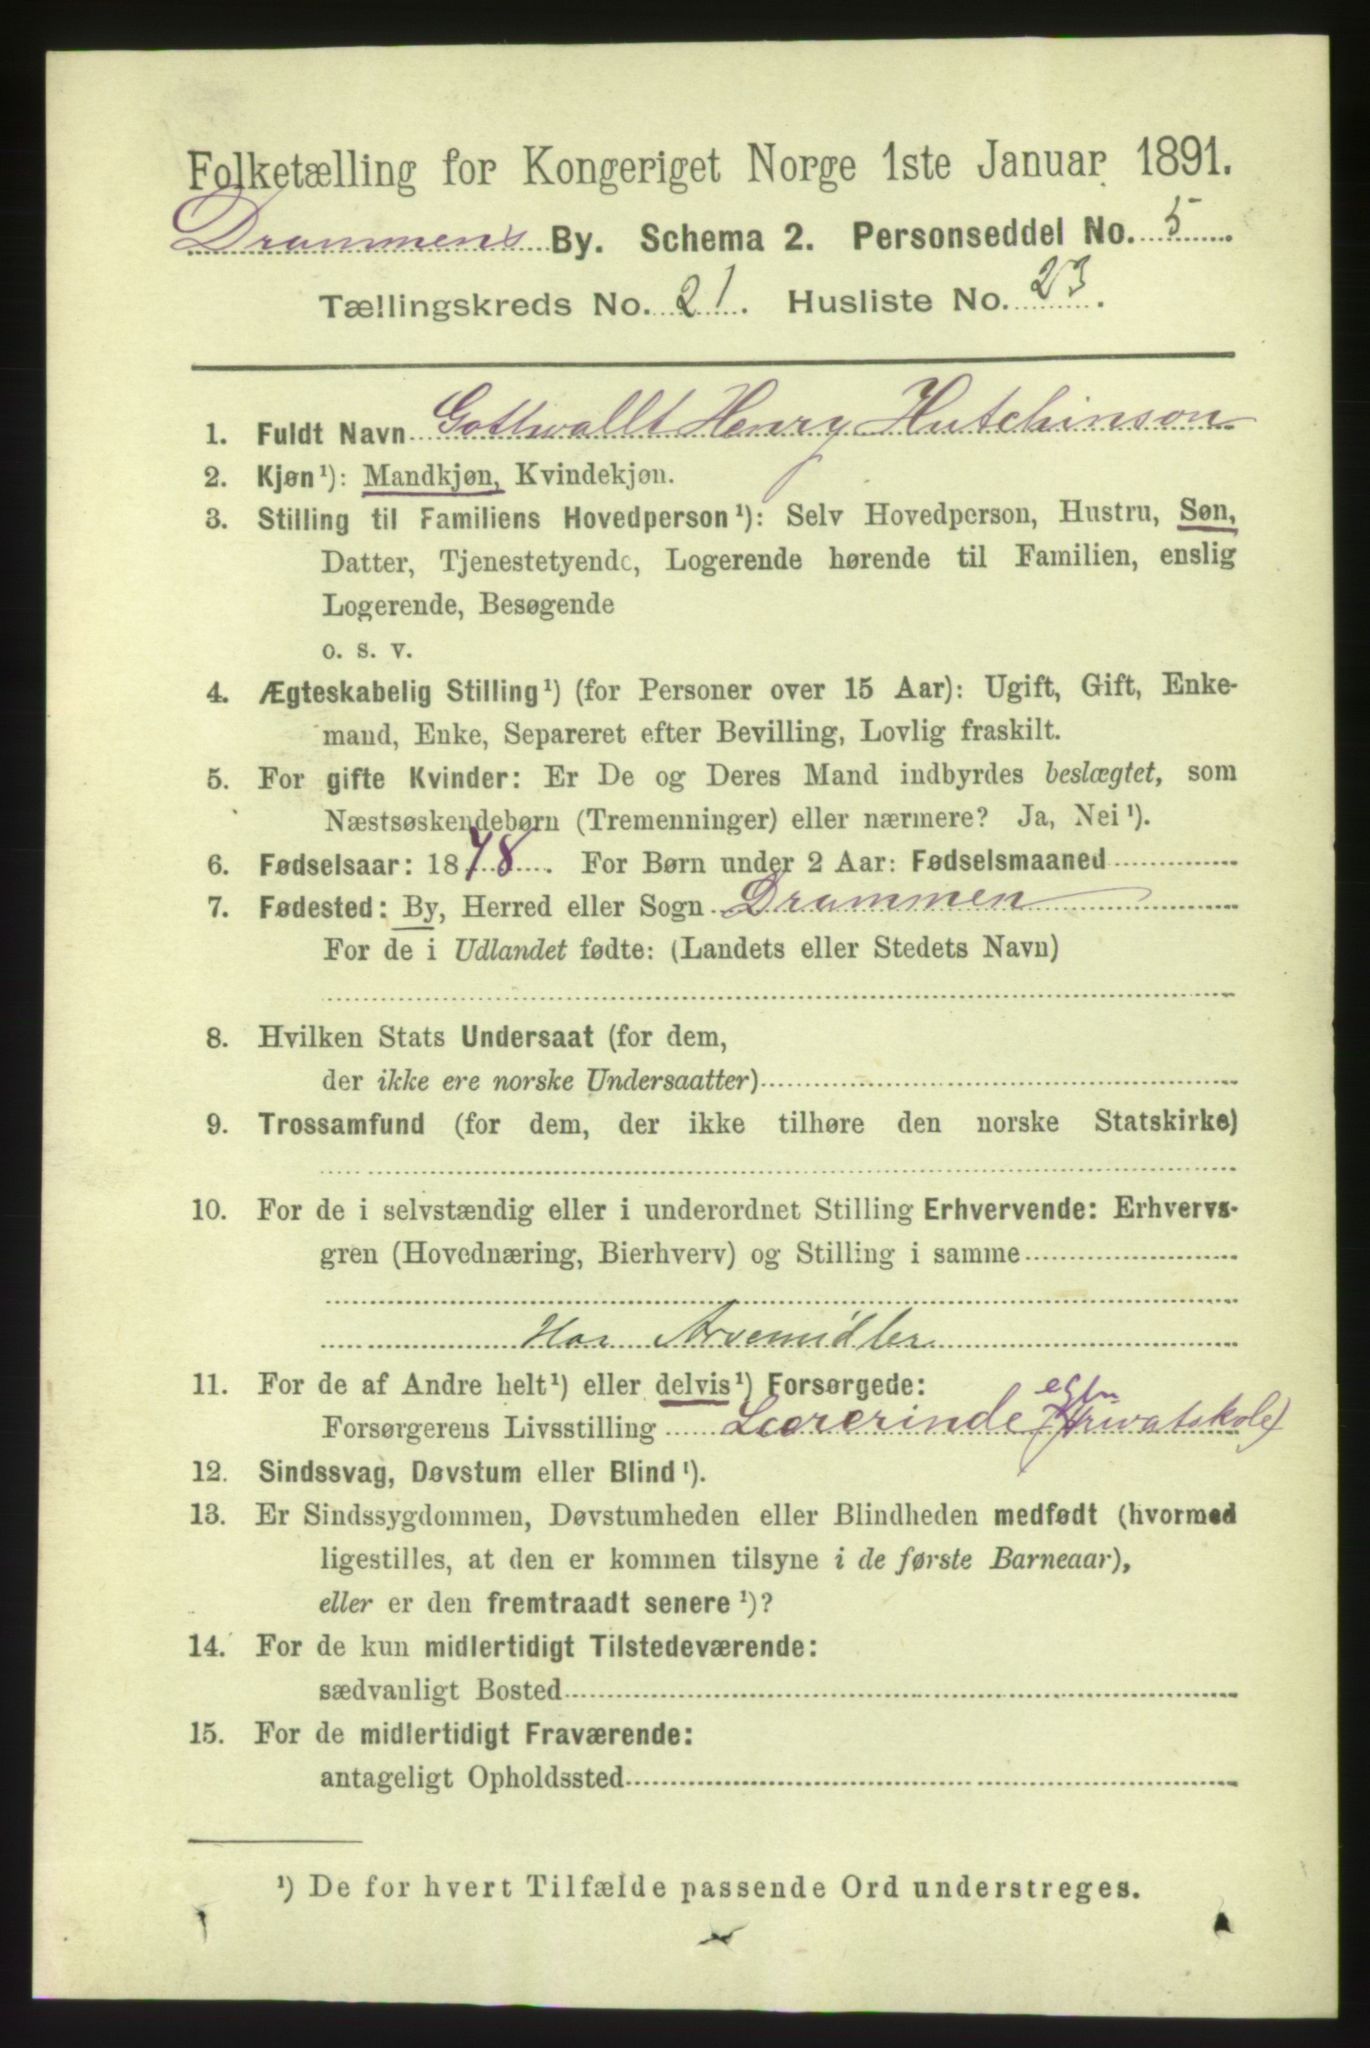 Folketælling for Kongeriget Norge 1ste Januar 1891.
Drammens By. Schema 2. Personseddel No. 5
Tællingskreds No. 21. Husliste No. 23.
1. Fuldt Navn Gottwallt Henry Hutchinson
2. Kjøn¹): Mandkjøn, Kvindekjøn.
3. Stilling til Familiens Hovedperson¹): Selv Hovedperson, Hustru, Søn,
Datter, Tjenestetyende, Logerende hørende til Familien, enslig
Logerende, Besøgende
o. s. v.
4. Ægteskabelig Stilling¹) (for Personer over 15 Aar): Ugift, Gift, Enke-
mand, Enke, Separeret efter Bevilling, Lovlig fraskilt.
5. For gifte Kvinder: Er De og Deres Mand indbyrdes beslægtet, som
Næstsøskendebørn (Tremenninger) eller nærmere? Ja, Nei¹).
6. Fødselsaar: 1878. For Børn under 2 Aar: Fødselsmaaned
7. Fødested: By, Herred eller Sogn Drammen
For de i Udlandet fødte: (Landets eller Stedets Navn)
8. Hvilken Stats Undersaat (for dem,
der ikke ere norske Undersaatter)
9. Trossamfund (for dem, der ikke tilhøre den norske Statskirke)
10. For de i selvstændig eller i underordnet Stilling Erhvervende: Erhvervs-
gren (Hovednæring, Bierhverv) og Stilling i samme
Har Arvemidler
11. For de af Andre helt¹) eller delvis¹) Forsørgede:
Forsørgerens Livsstilling Lærerinde (egen Privatskole)
12. Sindssvag, Døvstum eller Blind¹).
13. Er Sindssygdommen, Døvstumheden eller Blindheden medfødt (hvormed
ligestilles, at den er kommen tilsyne i de første Barneaar),
eller er den fremtraadt senere¹)?
14. For de kun midlertidigt Tilstedeværende:
sædvanligt Bosted
15. For de midlertidigt Fraværende:
antageligt Opholdssted
¹) De for hvert Tilfælde passende Ord understreges.